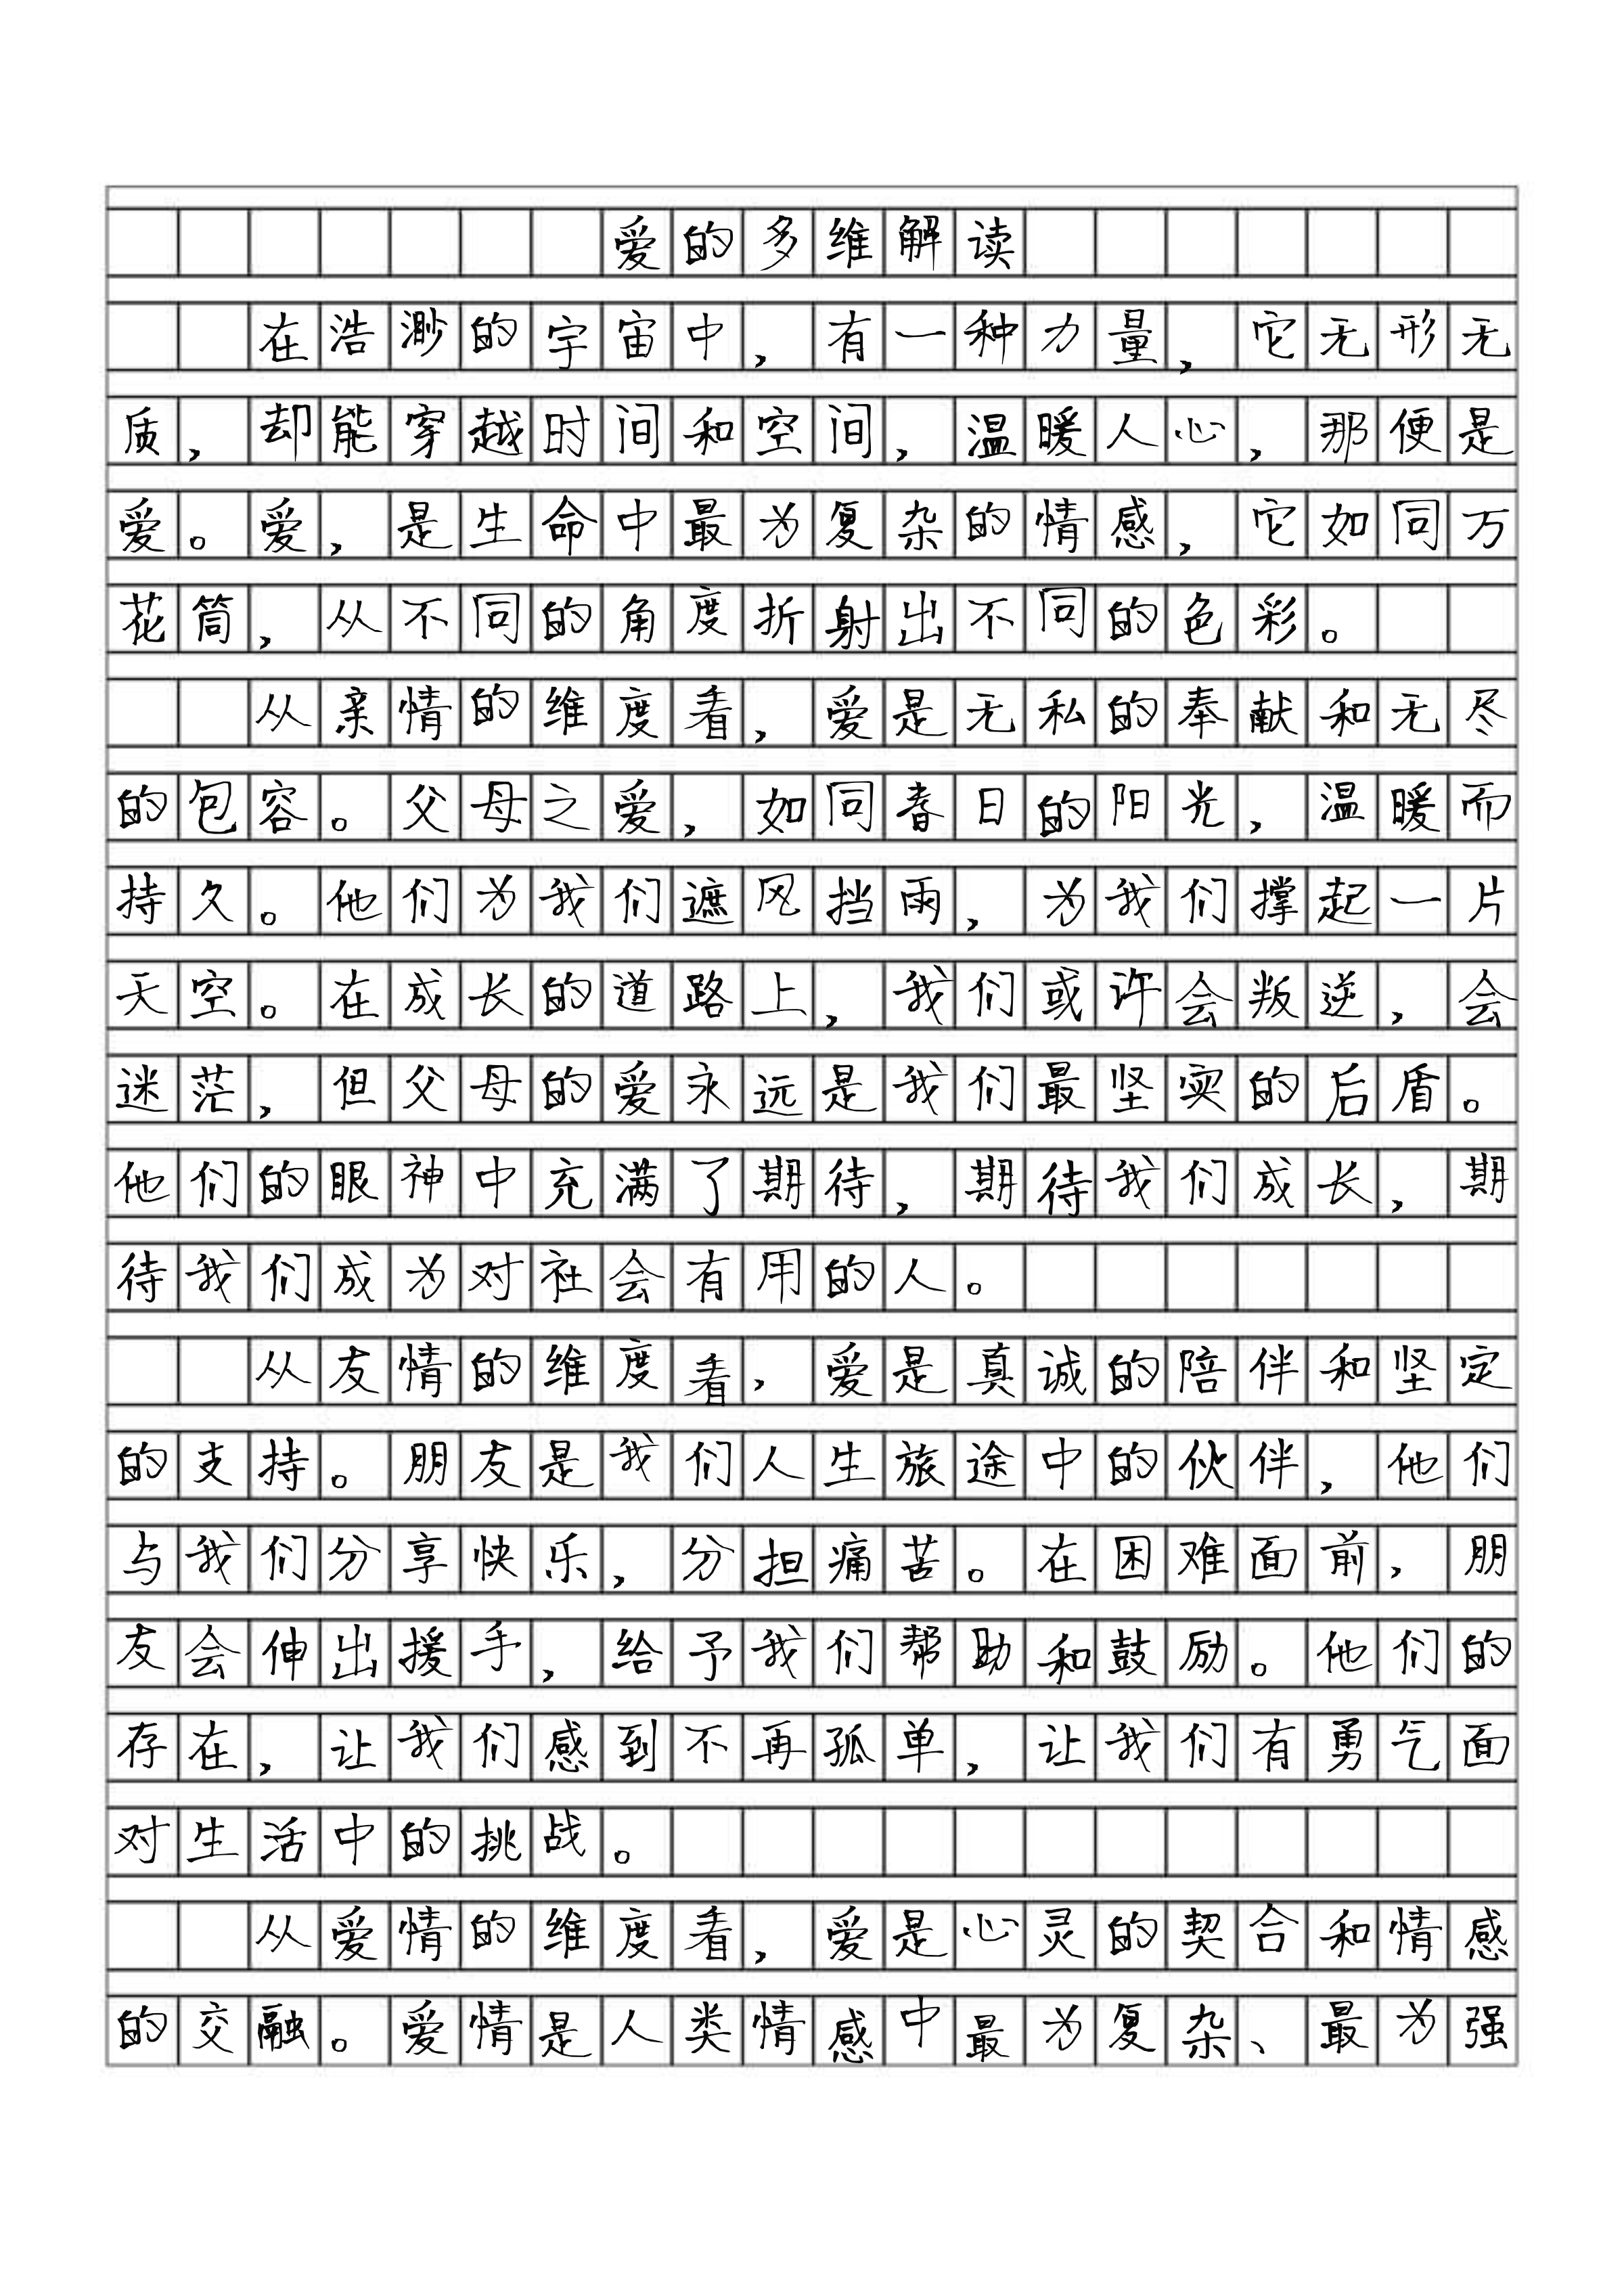 爱的多维解读
在浩渺的宇宙中，有一种力量，它无形无
质，却能穿越时间和空间，温暖人心，那便是
爱。爱，是生命中最为复杂的情感，它如同万
花筒，从不同的角度折射出不同的色彩。
从亲情的维度看，爱是无私的奉献和无尽
的包容。父母之爱，如同春日的阳光，温暖而
持久。他们为我们遮风挡雨，为我们撑起一片
天空。在成长的道路上，我们或许会叛逆，会
迷茫，但父母的爱永远是我们最坚实的后盾。
他们的眼神中充满了期待，期待我们成长，期
待我们成为对社会有用的人。
从友情的维度看，爱是真诚的陪伴和坚定
的支持。朋友是我们人生旅途中的伙伴，他们
与我们分享快乐，分担痛苦。在困难面前，朋
友会伸出援手，给予我们帮助和鼓励。他们的
存在，让我们感到不再孤单，让我们有勇气面
对生活中的挑战。
从爱情的维度看，爱是心灵的契合和情感
的交融。爱情是人类情感中最为复杂、最为强